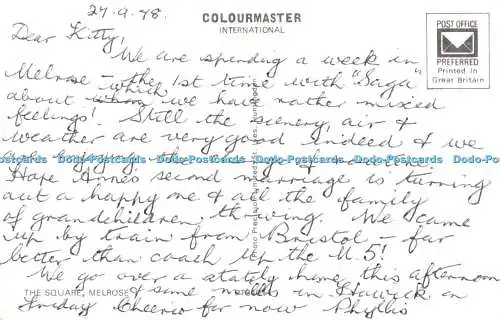 27.9.98.
COLOURMASTER
INTERNATIONAL
POST OFFICE
PREFERRED
Printed in
Great Britain
Dear Kitty,
We are spending a week in
Melrose - the 1st time with "Saga"
about whom which we have rather mixed
feelings! Still the scenery, air &
weather are very good indeed & we
are enjoying the
Hope Anne's second marriage is turning
out a happy one & all the family
of grandchildren thriving. We came
up by train from Bristol - far
better than coach up the M.5!
We go over a stately home this afternoon
& some mills in Hawick on
Friday Cheerio for now Phyllis
THE SQUARE, MELROSE
Photo Precision Limited, St. Ives, Huntingdon
Dodo-Postcards Dodo-Postcards Dodo-Postcards Dodo-Postcards Dodo-Postcards